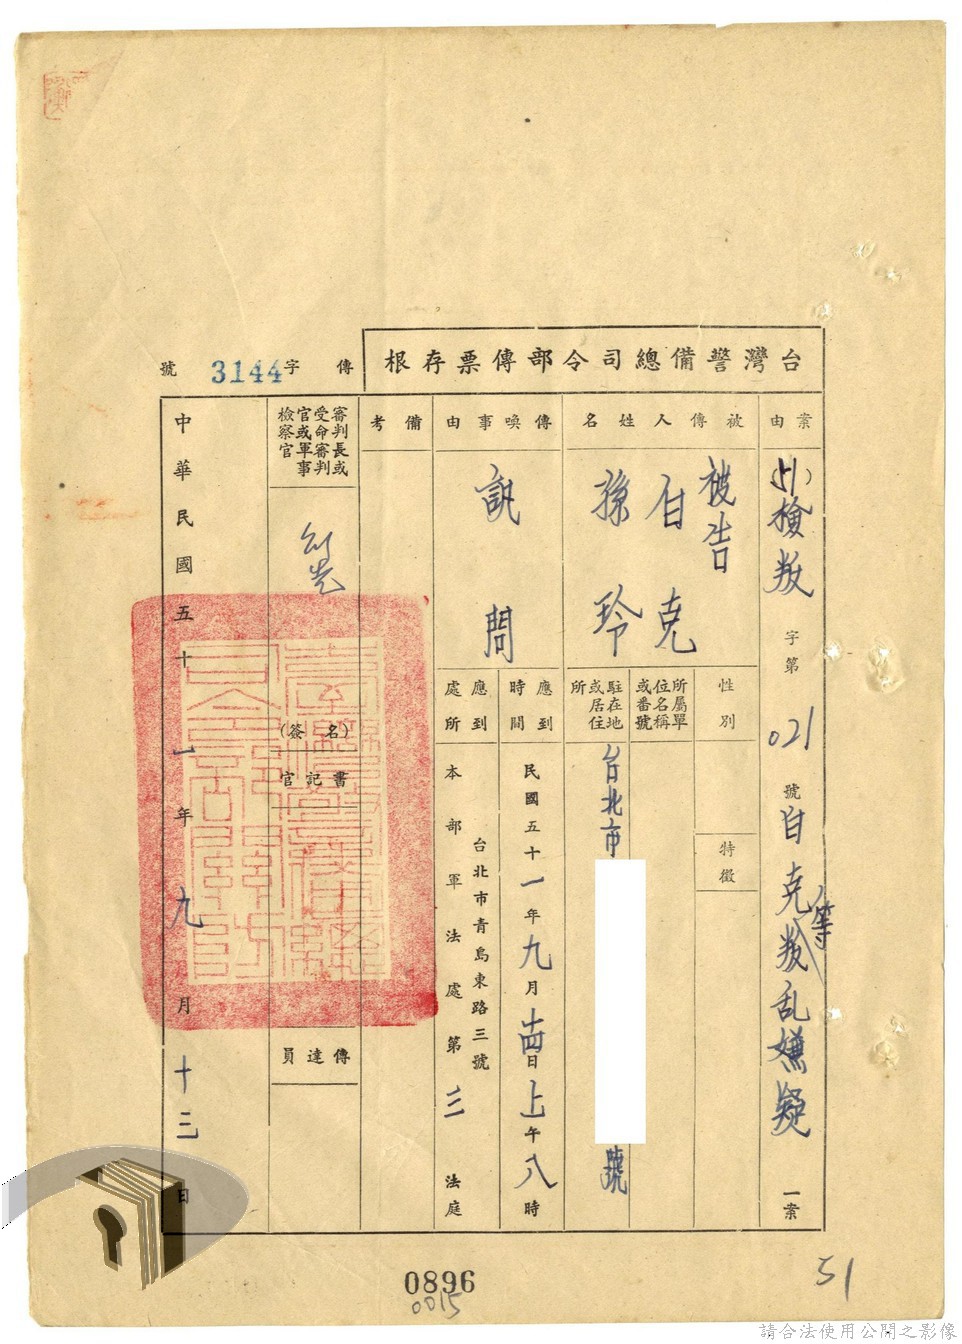 台灣警備總司令部傳票存根
傳字3144號
案由
(51)檢叛字第021號白克等叛亂嫌疑一案
被傳人姓名
被告
白克
孫玲
性別
特徵
所屬單位名稱或番號
駐在地或居住所
台北市
號
傳喚事由
訊問
應到時間
民國五十一年九月十四日上午八時
應到處所
台北市青島東路三號
本部軍法處第三法庭
備考
審判長或受命審判官或軍事檢察官
(簽名)
書記官
傳達員
中華民國五十一年九月十三日
0896
0015
51
請合法使用公開之影像